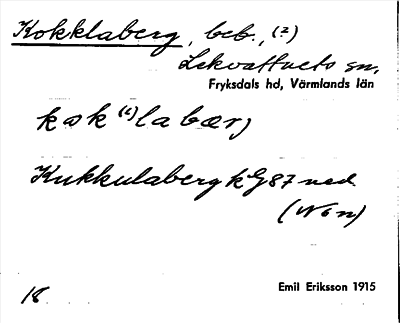 Kokklaberg, beb., (2)
Lekvattnets sn,
Fryksdals hd, Värmlands län
kok(ʻ)labærj
Kukkulaberg kG 87 ned
(Wän)
18
Emil Eriksson 1915